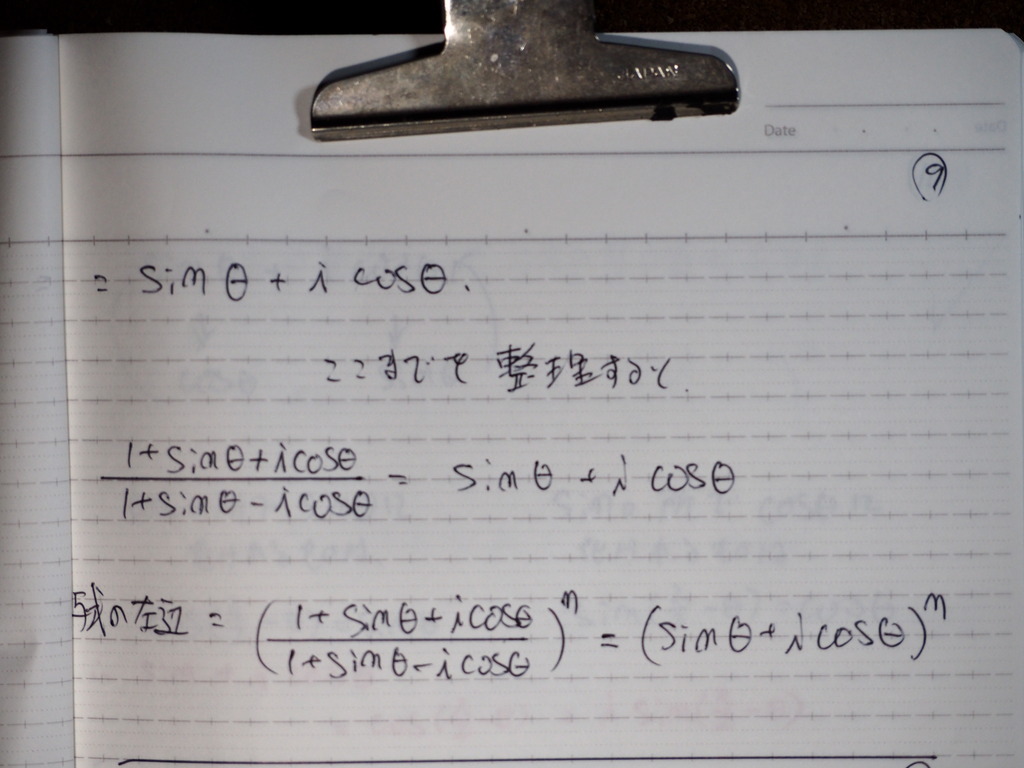 JAPAN
Date
⑨
= sinθ + i cosθ.
ここまでを整理すると、
\frac{1+sinθ+icosθ}{1+sinθ-icosθ} = sinθ + i cosθ
与式の左辺 = \left(\frac{1+sinθ+icosθ}{1+sinθ-icosθ}\right)^n = (sinθ + i cosθ)^n